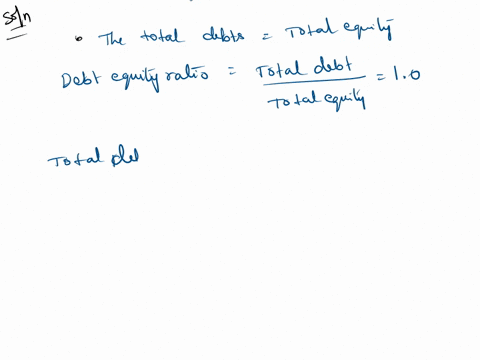 Soln
• The total debts = Total equity
Debt equity ratio = Total debt / Total equity = 1.0
Total de